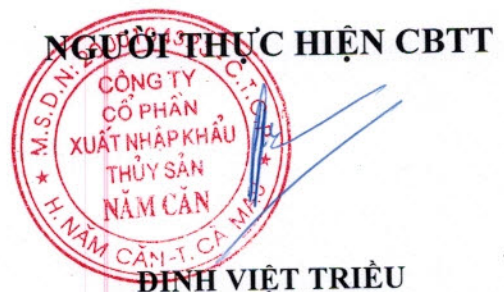 NGƯỜI THỰC HIỆN CBTT
CÔNG TY
CỔ PHẦN
XUẤT NHẬP KHẨU
THỦY SẢN
NĂM CĂN
H. NĂM CĂN-T. CÀ MAU
ĐINH VIỆT TRIỀU